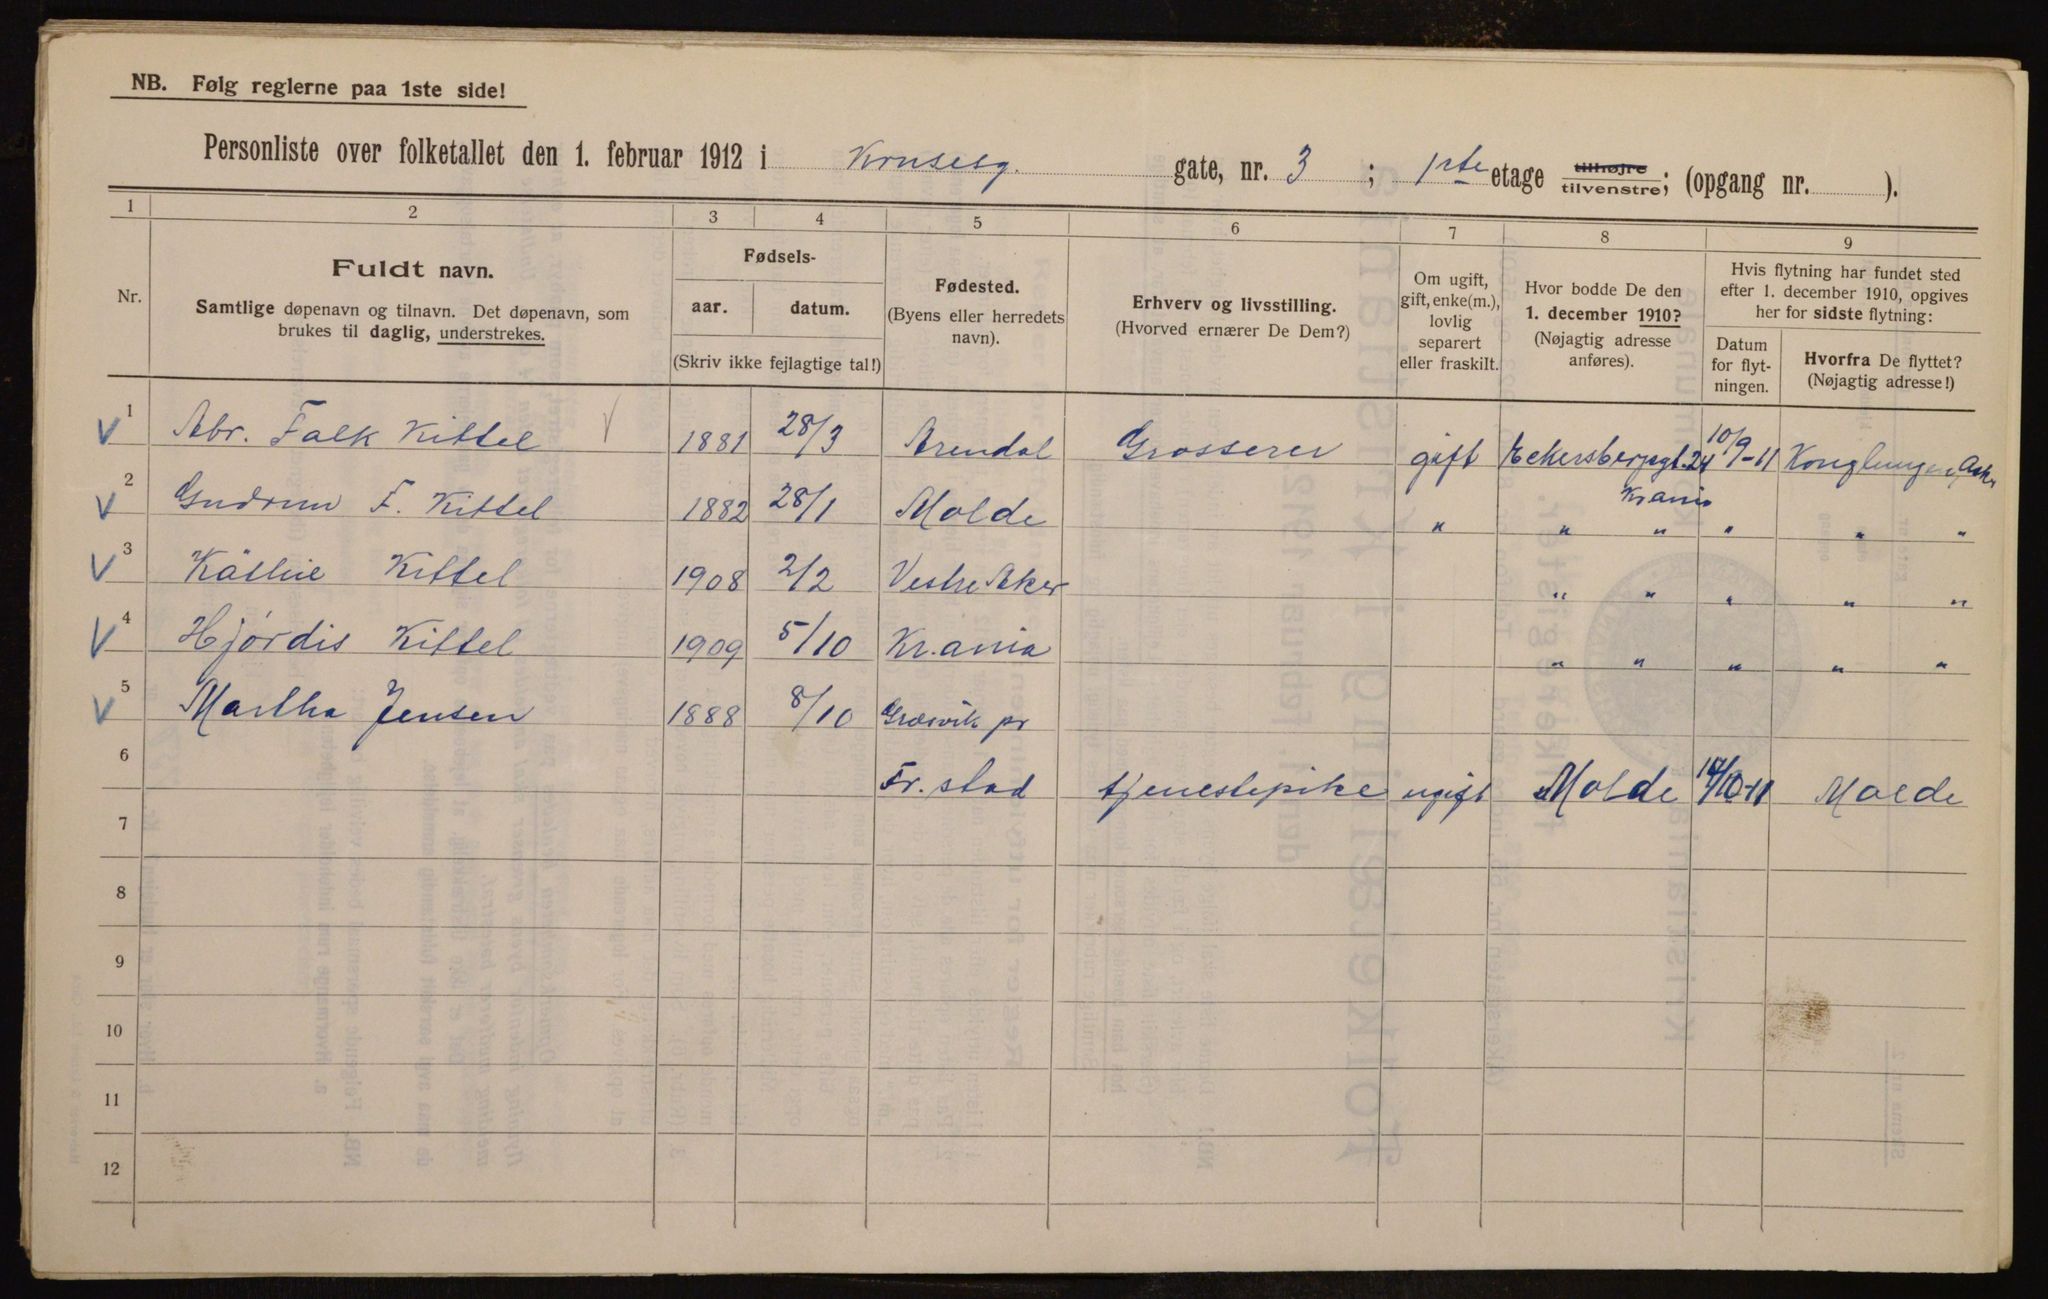 NB. Følg reglerne paa 1ste side!
Personliste over folketallet den 1. februar 1912 i Krusesg. gate, nr. 3 ; 1ste etage tilhøjre tilvenstre; (opgang nr. ).
1 2 3 4 5 6 7 8 9
Nr.
Fuldt navn.
Samtlige døpenavn og tilnavn. Det døpenavn, som
brukes til daglig, understrekes.
Fødsels-
aar. datum.
(Skriv ikke fejlagtige tal!)
Fødested.
(Byens eller herredets
navn).
Erhverv og livsstilling.
(Hvorved ernærer De Dem?)
Om ugift,
gift, enke(m.),
lovlig
separert
eller fraskilt.
Hvor bodde De den
1. december 1910?
(Nøjagtig adresse
anføres).
Hvis flytning har fundet sted
efter 1. december 1910, opgives
her for sidste flytning:
Datum
for flyt-
ningen.
Hvorfra De flyttet?
(Nøjagtig adresse!)
V 1 Abr. Falk Kittel V 1881 28/3 Arendal Grosserer gift Eckersbergsgt. 24 10/9-11 Konglungen, Asker
Krania
V 2 Gudrun F. Kittel 1882 28/1 Molde " " " " " "
V 3 Käthie Kittel 1908 2/2 Vestre Aker " " " " "
V 4 Hjördis Kittel 1909 5/10 Kr.ania " " " " "
V 5 Martha Jensen 1888 8/10 Græsvik pr
6 Fr.stad tjenestepike ugift Molde 14/10-11 Molde
7
8
9
10
11
12